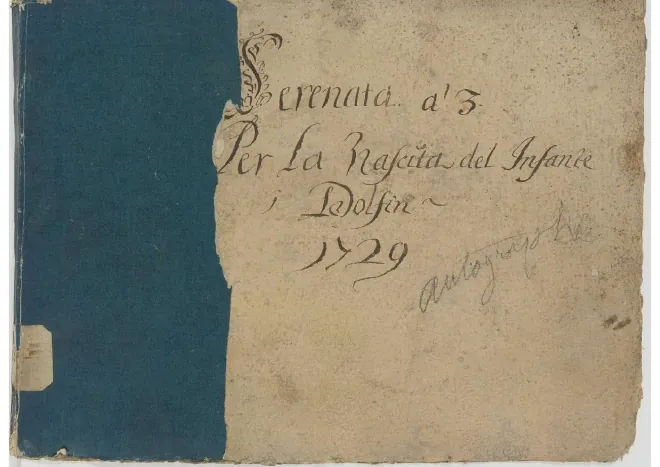 Serenata a' 3.
Per La Nascita del Infante
Dolfin
1729
autographe